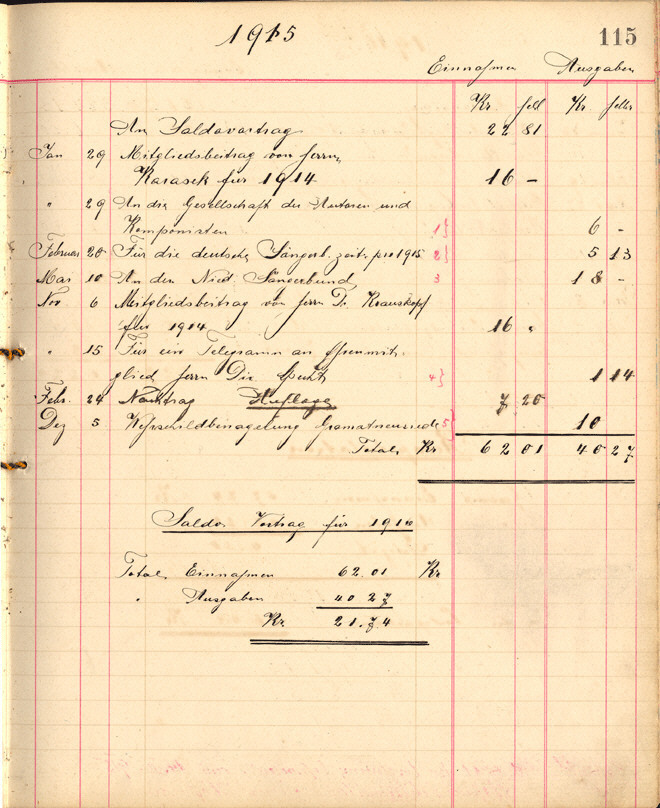 1915
115
Einnahmen Ausgaben
Kr. hell Kr. hellr
An Saldovortrag 22 81
Jan 29 Mitgliedsbeitrag von Herrn
Karasek für 1914 16 -
" 29 An die Gesellschaft der Autoren und
Komponisten 1} 6 -
Februar 20 Für die deutsche Sängerb. zeit. pro 1915 2} 5 13
Mai 10 An den Nied. Sängerbund 3 18 -
Nov 6 Mitgliedsbeitrag von Herrn Dr. Krauskopf
für 1914 16 "
" 15 Für ein Telegramm an Ehrenmit-
glied Herrn Dir. 4} 1 14
Febr. 24 Nachtrag 7 20
Dez 5 Wehrschildbenagelung Gramatneusiedl 5} 10
Total Kr 62 01 40 27
Saldo Vortrag für 1916
Total Einnahmen 62.01 Kr
" Ausgaben 40 27
Kr. 21.74